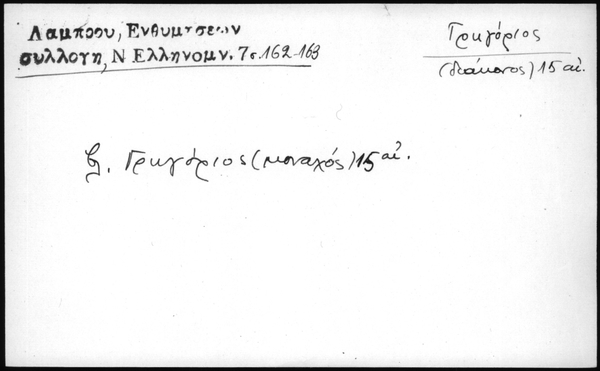 Λαμπρου, Ενθυμησεων
συλλογη, Ν Ελληνομν. 7ς. 162-163
Γρηγόριος
(διάκονος) 15 αἰ.
βλ. Γρηγόριος (μοναχός) 15 αἰ.